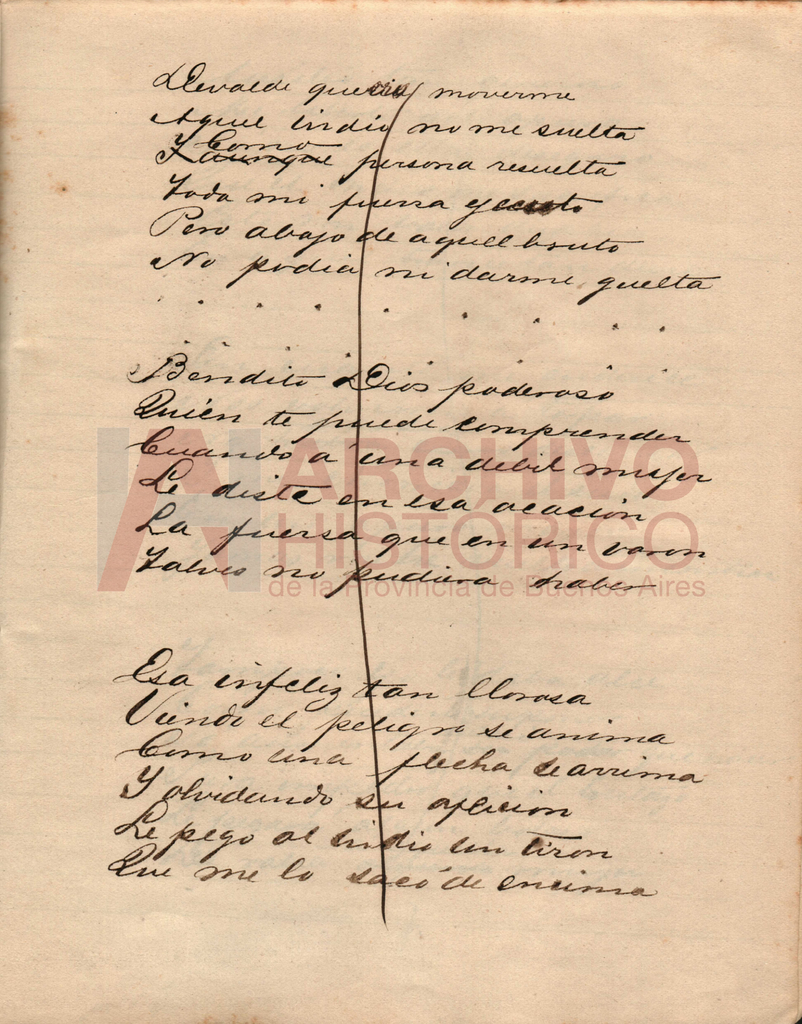 Devalde quería moverme
Aquel indio no me suelta
Como
Y aunque persona resuelta
Toda mi fuersa ejecuto
Pero abajo de aquel bruto
No podia ni darme guelta
Bendito Dios poderoso
Quién te puede comprender
Cuando á una debil muger
Le diste en esa ocacion
La fuersa que en un varon
Talves no pudiera haber
Esa infeliz tan llorosa
Viendo el peligro se anima
Como una flecha se arrima
Y olvidando su aflicion
Le pegó al indio un tiron
Que me lo sacó de encima
AH ARCHIVO
HISTÓRICO
de la Provincia de Buenos Aires